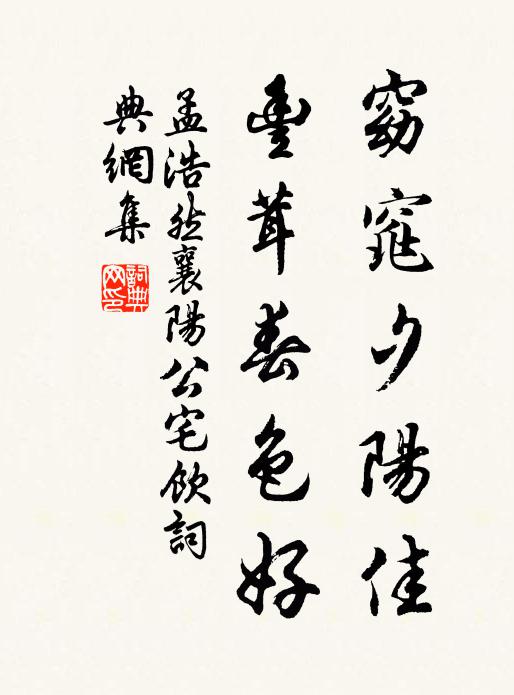 窈窕夕陽佳
豐茸春色好
孟浩然襄陽公宅飲詞
典網集
詞典
网印